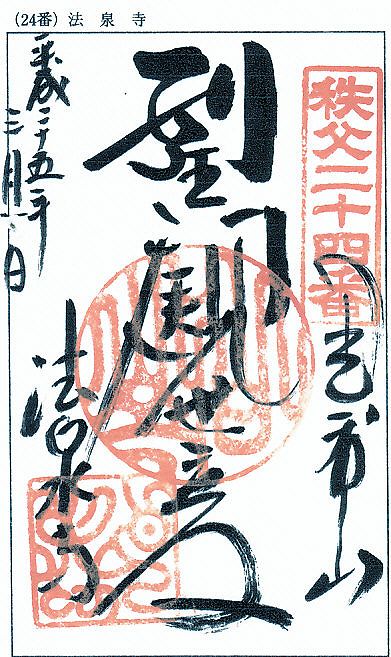 (24番) 法泉寺
秩父二十四番
光智山
聖観世音
法泉寺
平成二十五年
三月 日